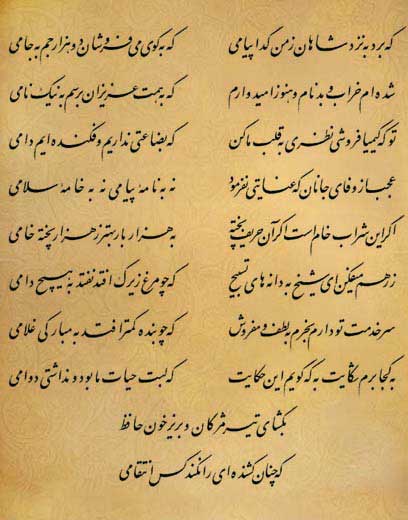 که برد به نزد شاهان ز من گدا پیامی که به کوی می فروشان دو هزار جم به جامی
شده ام خراب و بدنام و هنوز امیدوارم که به همت عزیزان برسم به نیک نامی
تو که کیمیا فروشی نظری به قلب ما کن که بضاعتی نداریم و فکنده ایم دامی
عجب از وفای جانان که عنایتی نفرمود نه به نامهٔ پیامی نه به خامهٔ سلامی
اگر این شراب خام است اگر آن حریف پخته به هزار بار بهتر ز هزار پخته خامی
ز رهم میفکن ای شیخ به دانه های تسبیح که چو مرغ زیرک افتد نفتد به هیچ دامی
سر خدمت تو دارم بخرم به لطف و مفروش که چو بنده کمتر افتد به مبارکی غلامی
به کجا برم شکایت به که گویم این حکایت که لبت حیات ما بود و نداشتی دوامی
بگشای تیر مژگان و بریز خون حافظ
که چنان کشنده ای را نکند کس انتقامی